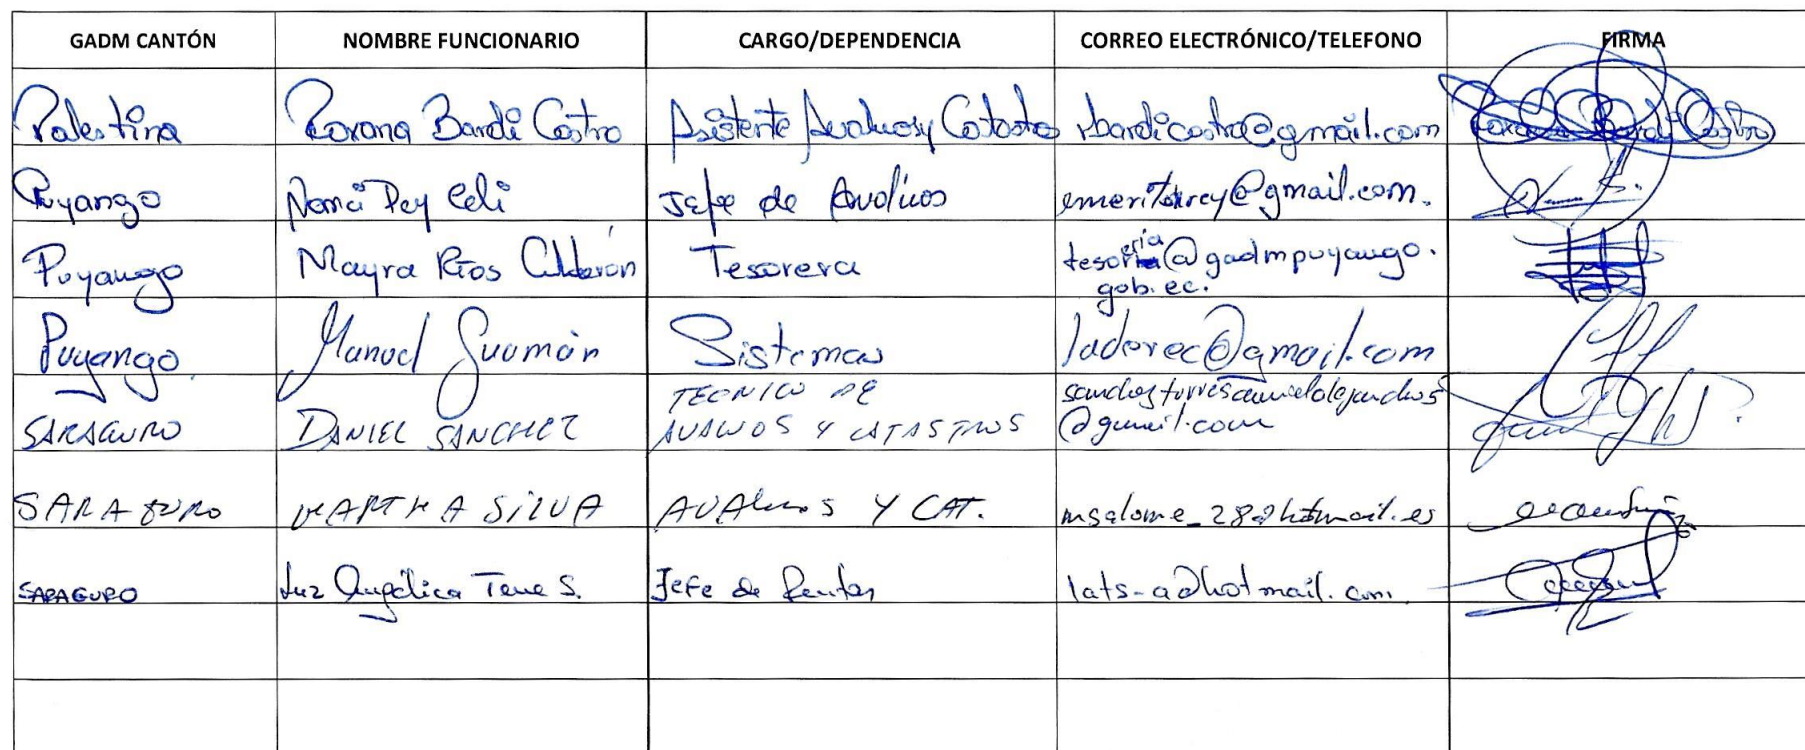 GADM CANTÓN NOMBRE FUNCIONARIO CARGO/DEPENDENCIA CORREO ELECTRÓNICO/TELEFONO FIRMA
Palestina Roxana Bardi Castro Asistente Avaluos y Catastro rbardicastro@gmail.com Roxana Bardi Castro
Puyango Jefe de Avalúos @gmail.com.
Puyango Mayra Ríos Calderón Tesorera tesoreria@gadmpuyango.
gob.ec.
Puyango Manuel Guamán Sistemas laderec@gmail.com
TECNICO DE
SARAGURO DANIEL SANCHEZ AVALUOS Y CATASTROS @gmail.com
SARAGURO MARTHA SILVA AVALUOS Y CAT. msalome_28@hotmail.es
SARAGURO Luz Angélica Tene S. Jefe de Rentas lats-a@hotmail.com.